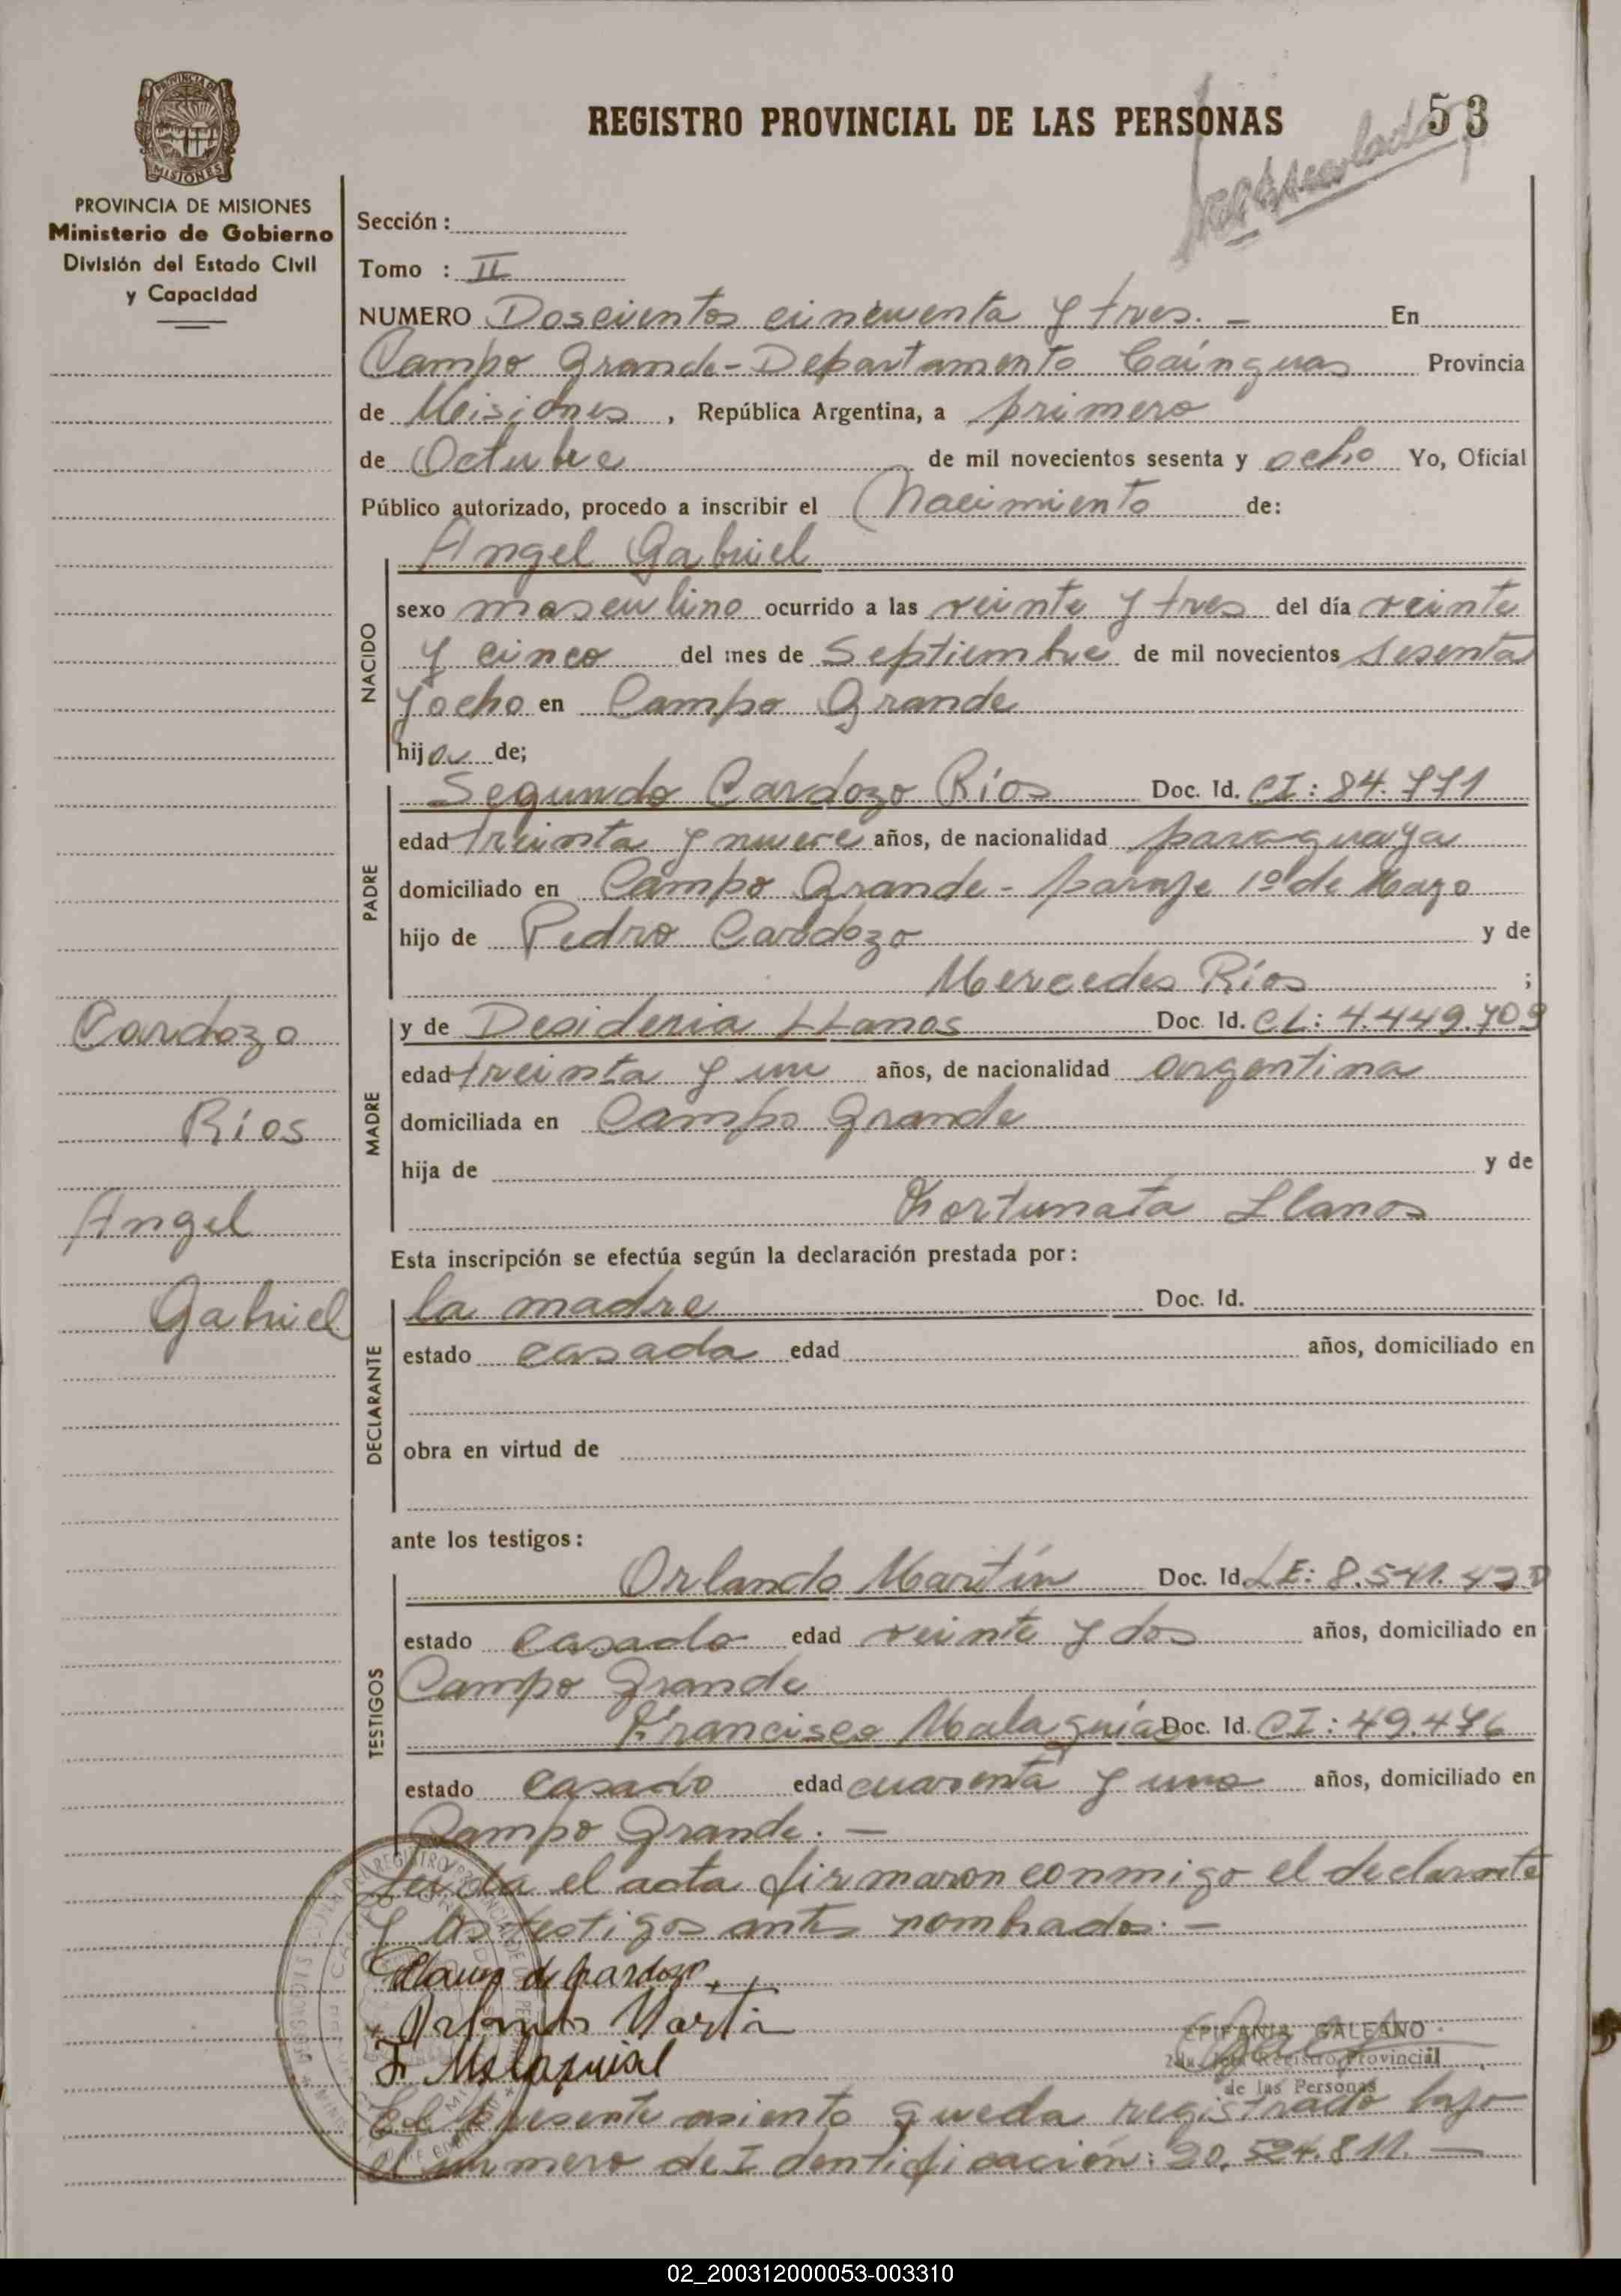 REGISTRO PROVINCIAL DE LAS PERSONAS
53
PROVINCIA DE MISIONES
Ministerio de Gobierno
División del Estado Civil
y Capacidad
Sección:
Tomo : II
NUMERO Doscientos cincuenta y tres. - En
Campo Grande - Departamento Cainguas Provincia
de Misiones, República Argentina, a primero
de Octubre de mil novecientos sesenta y ocho Yo, Oficial
Público autorizado, procedo a inscribir el Nacimiento de:
Angel Gabriel
NACIDO
sexo masculino ocurrido a las veinte y tres del día veinte
y cinco del mes de Septiembre de mil novecientos sesenta
y ocho en Campo Grande
hijo de;
PADRE
Segundo Cardozo Ríos Doc. Id. CI: 84.771
edad treinta y nueve años, de nacionalidad paraguaya
domiciliado en Campo Grande - paraje 1º de Mayo
hijo de Pedro Cardozo y de
Mercedes Ríos ;
MADRE
y de Desideria LLanos Doc. Id. CI: 4.449.709
edad treinta y un años, de nacionalidad argentina
domiciliada en Campo Grande
hija de y de
Fortunata Llanos
Cardozo
Ríos
Angel
Gabriel
Esta inscripción se efectúa según la declaración prestada por:
DECLARANTE
la madre Doc. Id.
estado casada edad años, domiciliado en
obra en virtud de
ante los testigos:
TESTIGOS
Orlando Martín Doc. Id. LE: 8.541.420
estado casado edad veinte y dos años, domiciliado en
Campo Grande
Francisco Malaquías Doc. Id. CI: 49.476
estado casado edad cuarenta y uno años, domiciliado en
Campo Grande. -
Leida el acta firmaron conmigo el declarante
y los testigos antes nombrados: -
Llanos de Cardozo
Orlando Martin
F. Malaquias
EPIFANIA GALEANO
Registro Provincial
de las Personas
El presente asiento queda registrado bajo
el numero de Identificación: 20.524.811. -
02_200312000053-003310